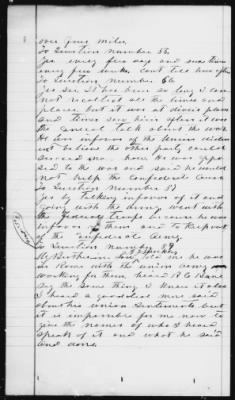 over four miles
To Question Number 85
Yes every few days and sometimes
every few weeks. Can't tell how often
To Question Number 86
Yes Sir It has been so long I can
not recollect all the times and
places but it was at divers places
and times said his it was
the General talk about the war
He was in favor of the Union did
not believe the other party could
Succeed Know He was oppo
sed to the war and said he would
not help the Confederate Cause
To Question Number 87
Yes by talking in favor of it and
going with the army went with
the Federal troops because he was
in favor of them and to keep out
of the Confederate Army
To Question Number 89
My Brother in law told me he was
at Rome with the union army
working for them heard R C Kane
say the same thing I Knew it also
I heard a good deal more said
about his union Sentiments but
it is impossible for me now to
give the names of who I heard
speak of it and what he said
and done